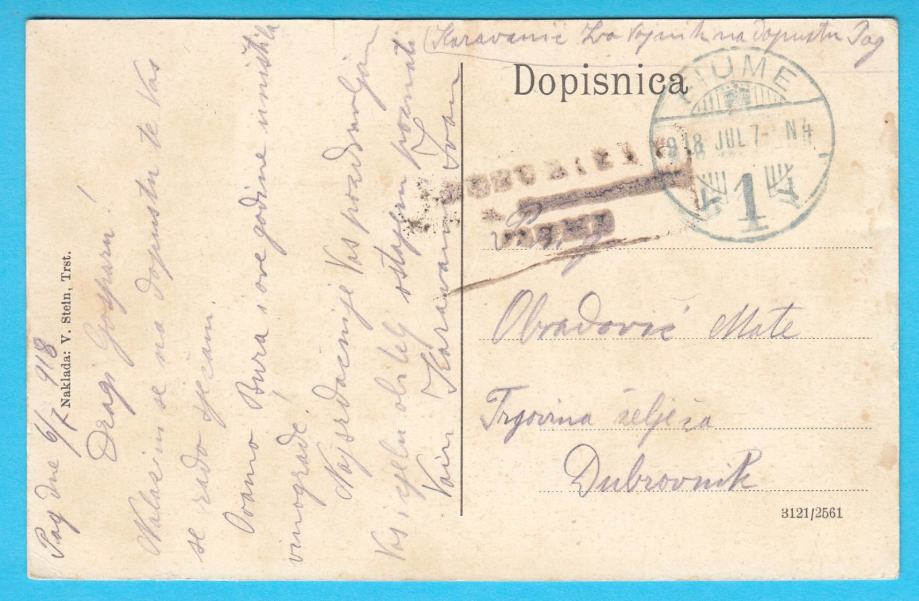 Karavanić Ivo vojnik na dopustu Pag
Dopisnica
FIUME
918 JUL 7 - N4
1
A
FIUME
Obradović Mate
Trgovina željeza
Dubrovnik
3121/2561
Naklada: V. Stein, Trst.
Pag dne 6/7 918
Dragi Gospari!
Nalazim se na dopustu te Vas
se rado sjećam.
Ovamo Bura i ove godine uništila
vinograde!
Najsrdačnije Vas pozdravljam
Vas i cijelu obitelj ostajem poznati
Vam Karavanić Ivan